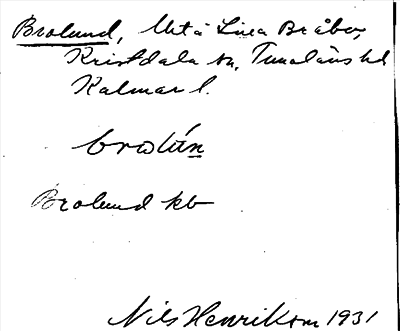 Brolund, Utå Lillla Bråbo,
Kristdala sn, Tunaläns hd
Kalmar l.
brolún
Brolund kb
Nils Henrikson 1931